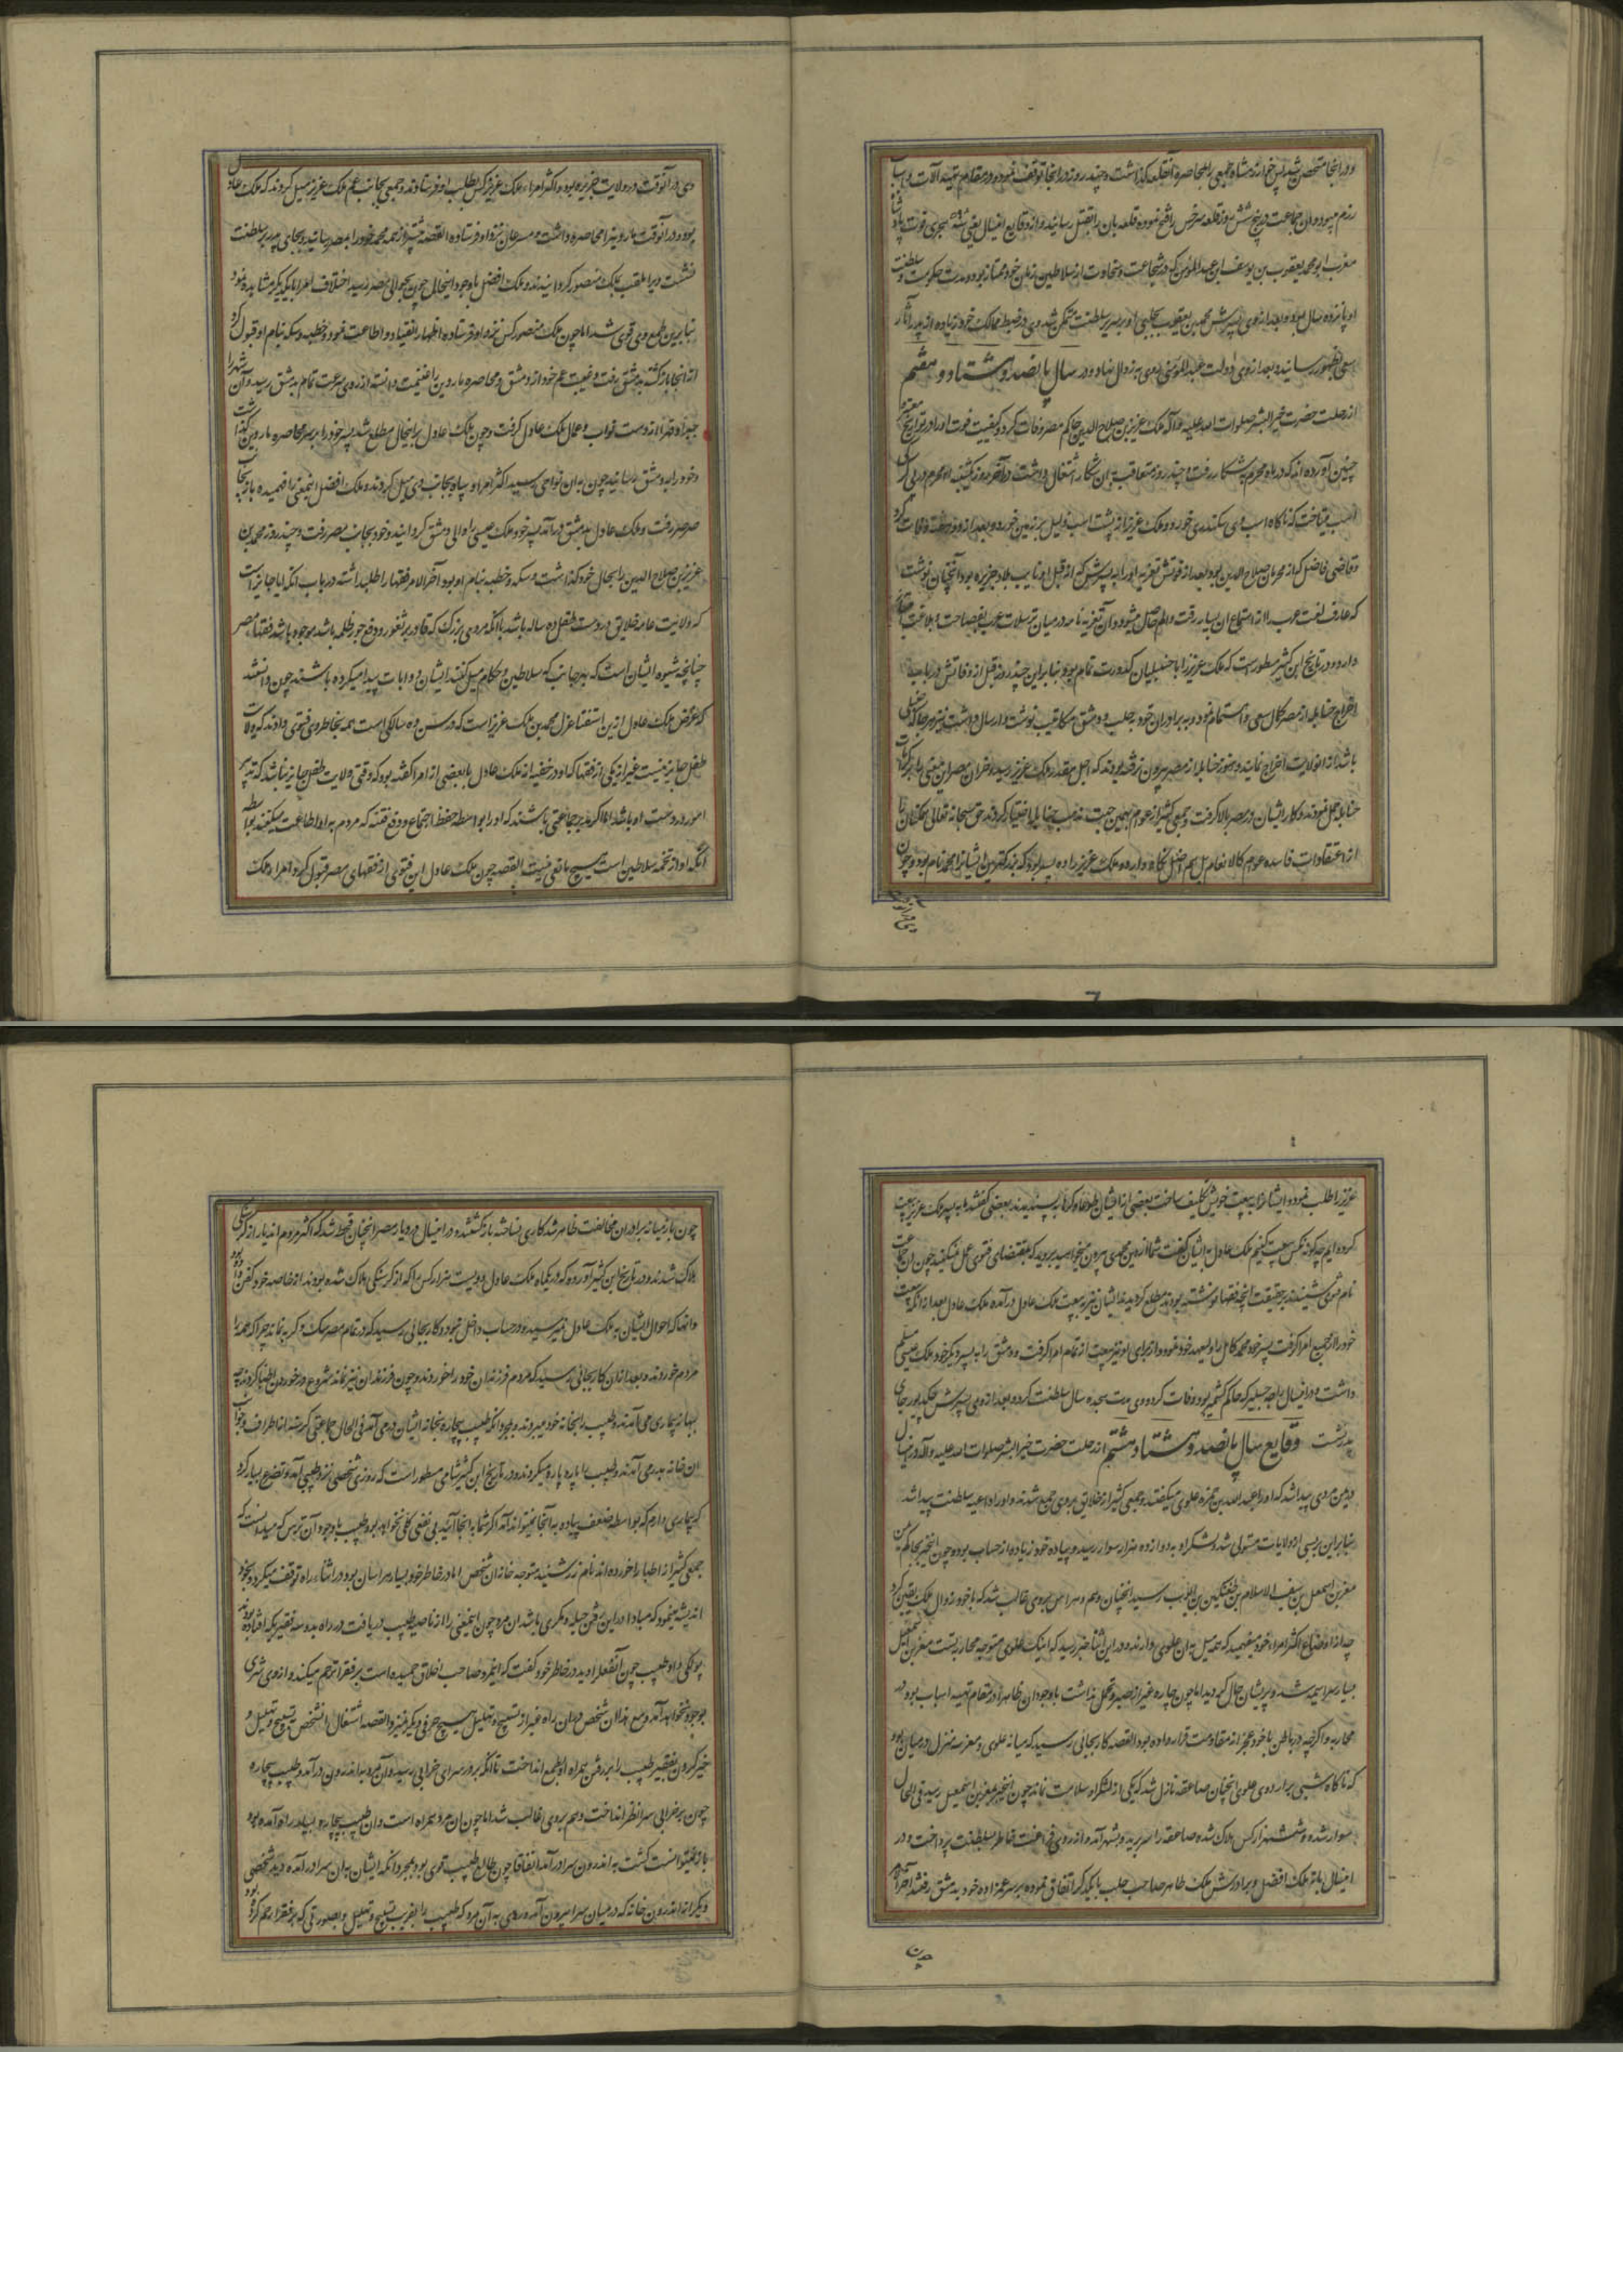 و در آنجا متحصن شد پس خوارزمشاه جمعی را بمحاصره آنقلعه گذاشت و چند روز در آنجا توقف نمود و در مقام تهیه آلات و اسباب
رزم میبود و آن جماعت در پنج شش روز قلعه سرخس را فتح نموده قلعه بان را بقتل رسانیدند از وقایع اینسال یعنی سنه هجری فوت پادشاه
مغرب ابو محمد یعقوب بن یوسف ابن عبدالمومن که در شجاعت و سخاوت از سلاطین زمان خود ممتاز بود و مدت حکومت و سلطنت
او پانزده سال بود و بعد از وی پسرش محمد بن یعقوب بجای او بر سریر سلطنت متمکن شد وی در ضبط ممالک خود زیاده از پدر آثار
سعی بظهور رسانید و بعد از وی دولت عبدالمومنی روی به زوال نهاد و در سال پانصد و هشتاد و هفتم
از رحلت حضرت خیر البشر صلوات الله علیه و آله ملک عزیز بن صلاح الدین حاکم مصر وفات کرد و کیفیت فوت او در تواریخ معتبره
چنین آورده اند که در ماه محرم بشکار رفت و چند روز متعاقب بآن شکار اشتغال داشت در آخر روز یکشنبه
اسب میتاخت که ناگاه اسب وی سکندری خورد و ملک عزیز از پشت اسب بر زمین خورد و بعد از دو هفته وفات کرد
و قاضی فاضل که از محرمان صلاح الدین بود بعد از فوتش تعزیه او را به پسرش که از قبل او نایب بلاد جزیره بود آنچنان نوشت
که عارف لغت عرب را از استماع آن بسیار رقت والم حاصل میشود و آن تعزیه نامه در میان ترسلات عرب بفصاحت و بلاغت
دارد و در تاریخ ابن کثیر مسطور است که ملک عزیز را با حنبلیان کدورت تمام بود بنابراین چند روز قبل از وفاتش در باب
اخراج حنابله از مصر کمال سعی و اهتمام نمود و به برادران خود بحلب و دمشق مکاتیب نوشت و ارسال داشت که هر جا که حنبلی
باشد از آن ولایت اخراج نمایند و هنوز حنابله از مصر بیرون نرفته بودند که اجل ملک عزیز رسید و مردمان مصر این معنی را بر کرامات
حنابله حمل نمودند و کار ایشان در مصر بالا گرفت و جمعی کثیر از عوام بهمین جهت مذهب حنابله را اختیار کردند حق سبحانه تعالی
از اعتقادات فاسده عوام کالانعام بل هم اضل نگاه دارد و ملک عزیز را ده پسر بود که بزرگترین ایشان را محمد نام بود و چون
وی در آنوقت در ولایت جزیره بود و اکثر امراء ملک عزیز کس بطلب او فرستادند و جمعی بجانب عم ملک عزیز میل کردند که ملک عادل
بود و در آنوقت ماردین را محاصره داشت و مسرعان نزد او فرستاده القصه پیشتر از همه محمد خود را بمصر رسانید و بجای پدر بر سلطنت
نشست و او را ملقب بملک منصور گردانیدند و ملک افضل با وجود اینحال چون بحوالی مصر رسید اختلاف امرا با یکدیگر مشاهده نمود
بنابرین طمع وی قوی شد اما چون ملک منصور کس نزد او فرستاده اظهار انقیاد و اطاعت نمود و خطبه و سکه بنام او قبول کرد
از آنجا بازگشته بدمشق رفت و غیبت عم خود از دمشق و محاصره ماردین را غنیمت دانسته از روی سرعت تمام بدمشق رسید و آن شهر را
جبرا و قهرا از دست نواب و عمال ملک عادل گرفت و چون ملک عادل بر اینحال مطلع شد پسر خود را بر سر محاصره ماردین گذاشت
و خود را به دمشق رسانید چون به آن نواحی رسید اکثر امرا و سپاه بجانب وی میل کردند و ملک افضل اینمعنی را فهمیده باز بجانب
صرصر رفت و ملک عادل بدمشق درآمد پسر خود ملک عیسی را والی دمشق گردانید و خود بجانب مصر رفت و چند روز محمد بن
عزیز بن صلاح الدین را بحال خود گذاشت و سکه و خطبه بنام او بود آخر الامر فقها را طلب داشته در باب آنکه آیا جایز است
که ولایت عامه خلایق در دست طفل ده ساله باشد با آنکه مردی بزرگ که قادر بر ثغور و دفع جور ظلمه باشد موجود باشد فقهاء مصر
چنانچه شیوه ایشان است که بهر جانب که سلاطین و حکام میل کنند ایشان در آن باب پیدا میکرده باشند چون دانستند
که غرض ملک عادل ازین استفتا عزل محمد بن ملک عزیز است که در سن ده سالگی است همه بخاطر وی فتوی دادند که ولایت
طفل جایز نیست غیر از یکی از فقها که او در خفیه از ملک عادل با بعضی از امرا گفته بود که وقتی ولایت طفل جایز نباشد که تدبیر
امور در دست او باشد اما اگر مدبر جماعتی باشند که او را بواسطه حفظ اجتماع و دفع فتنه که مردم به او اطاعت میکنند بواسطه
آنکه او از تخمه سلاطین است هیچ مانعی نیست القصه چون ملک عادل این فتوی از فقهای مصر قبول کرد و امراء ملک
عزیز را طلب نمود و ایشان را به بیعت خویش تکلیف ساخت بعضی از ایشان طوعا و کرها پسندیدند بعضی گفتند ما به پسر ملک عزیز بیعت
کرده ایم چگونه نکس بیعت کنیم ملک عادل به ایشان گفت شما از دین محمدی بیرون میخواهید بروید که بمقتضای فتوی عمل نمیکنید چون آن جماعت
نام فتوی شنیدند و بر حقیقت آنچه فقها نوشته بودند مطلع گردیدند ایشان نیز به بیعت ملک عادل درآمده ملک عادل بعد از آنکه بیعت
خود را از جمیع امرا گرفت پسر خود محمد کامل را ولیعهد خود نمود و از برای او نیز بیعت از تمام امرا گرفت و دمشق را به پسر دیگر خود ملک عیسی مسلم
داشت و در اینسال راجه که حاکم کشمیر بود وفات کرد و وی مدت هجده سال سلطنت کرده بعد از وی پسرش بجای
پدر نشست وقایع سال پانصد و هشتاد و هشتم از رحلت حضرت خیر البشر صلوات الله علیه و آله در اینسال
در یمن مردی پیدا شد که او را عبدالله بن حمزه علوی میگفتند و جمعی کثیر از خلایق بر وی جمع شدند و او را داعیه سلطنت پیدا شد
بنابراین بر بسی از ولایات مستولی شد و لشکر او به دوازده هزار سوار رسید و پیاده خود زیاده از حساب بود و چون اینخبر بحاکم یمن
معز بن اسمعیل بن سیف الاسلام بن طغتکین بن ایوب رسید آنچنان وهم و هراس بر وی غالب شد که با خود زوال ملک یقین کرد
چه از اوضاع اکثر امراء خود میفهمید که همه میل به آن علوی دارند و در این اثنا خبر رسید که اینک علوی متوجه محاربه است معز بن اسمعیل
بسیار سراسیمه شد و پریشان حال گردید اما چون چاره غیر از صبر و تحمل نداشت با وجود آن ظاهرا در مقام تهیه اسباب بود و
محاربه و اگرچه در باطن با خود عجز از مقاومت قرار داده بود القصه کار بجائی رسید که میانه علوی و معز سه منزل در میان بود
که ناگاه شبی بر اردوی علوی آنچنان صاعقه نازل شد که یکی از لشکر او سلامت نماند چون اینخبر بمعز بن اسمعیل رسید فی الحال
سوار شده و شش هزار کس هلاک شده صاعقه را سر برید و بشهر آمد و از روی فراغت خاطر سلطنت پرداخت و در
اینسال باز ملک افضل و برادرش ملک ظاهر صاحب حلب با یکدیگر اتفاق نموده بر سر عمزاده خود بدمشق رفتند آخر الامر
چون
چون باز میانه برادران مخالفت ظاهر شد کاری نساخته بازگشتند و در اینسال در دیار مصر آنچنان قحط شد که اکثر مردم آن دیار از گرسنگی
هلاک شدند و در تاریخ ابن کثیر آورده که در یکماه ملک عادل دویست هزار کس را که از گرسنگی هلاک شده بودند از خاصه خود کفن داد
و آنها که احوال ایشان به ملک عادل نمیرسید در حساب داخل نبود و کار بجائی رسید که در تمام مصر سگ و گربه نماند چرا که همه را
مردم خوردند و بعد از آن کار بجائی رسید که مردم فرزندان خود را خوردند و چون فرزندان نیز نماند شروع در خوردن اطبا کردند به
بهانه بیماری می آمدند و طبیب را بخانه خود میبردند و بمجرد آنکه طبیب بیچاره بخانه ایشان در می آمد فی الحال جماعتی گرسنه از اطراف و جوانب
آن خانه بدر می آمدند و طبیب را پاره پاره میکردند و در تاریخ ابن کثیر شامی مسطور است که روزی شخصی نزد طبیبی آمد و تضرع بسیار کرد
که بیماری دارم که بواسطه ضعف پیاده به آنجا نمیتواند آمد اگر شما به آنجا آئید بی نفعی کلی نخواهد بود طبیب با وجود آن ترس که میدانست که
جمعی کثیر از اطبا را خورده اند نام زر شنید متوجه خانه آن شخص اما در خاطر خود بسیار هراسان بود در اثناء راه توقف میکرد و با خود
اندیشه مینمود که مبادا در این رفتن حیله و مکری باشد آن مرد چون اینمعنی را از ناصیه طبیب دریافت در راه بدو سه فقیر که افتاده بودند
پولکی داد و طبیب چون آنفعل را دید در خاطر خود گفت که اینمرد صاحب اخلاق حمیده است بر فقرا ترحم میکند و از وی شری
بوجود نخواهد آمد و مع هذا آن شخص در آن راه غیر از تسبیح و تهلیل هیچ حرفی دیگر نمیزد القصه اشتغال آنشخص بتسبیح و تهلیل و
خیر کردن بفقیر طبیب را بر رفتن همراه او بطمع انداخت تا آنکه بر در سرای خرابی رسید و آن مرد به اندرون درآمد و طبیب بیچاره
چون بر خرابی سرا نظر انداخت وهم بر وی غالب شد اما چون آن مرد همراه است و آن طبیب بیچاره بسیار راه آمده بود
باز نمیتوانست گشت به اندرون سرا درآمد اتفاقا چون طالع طبیب قوی بود بمجرد آنکه ایشان به آن سرا درآمده دید شخصی
دیگر از اندرون خانه که در میان سرا بیرون آمد و روی به آن مرد که طبیب را بفریب تسبیح و تهلیل و بصورتی که بر فقرا رحم کرده بود